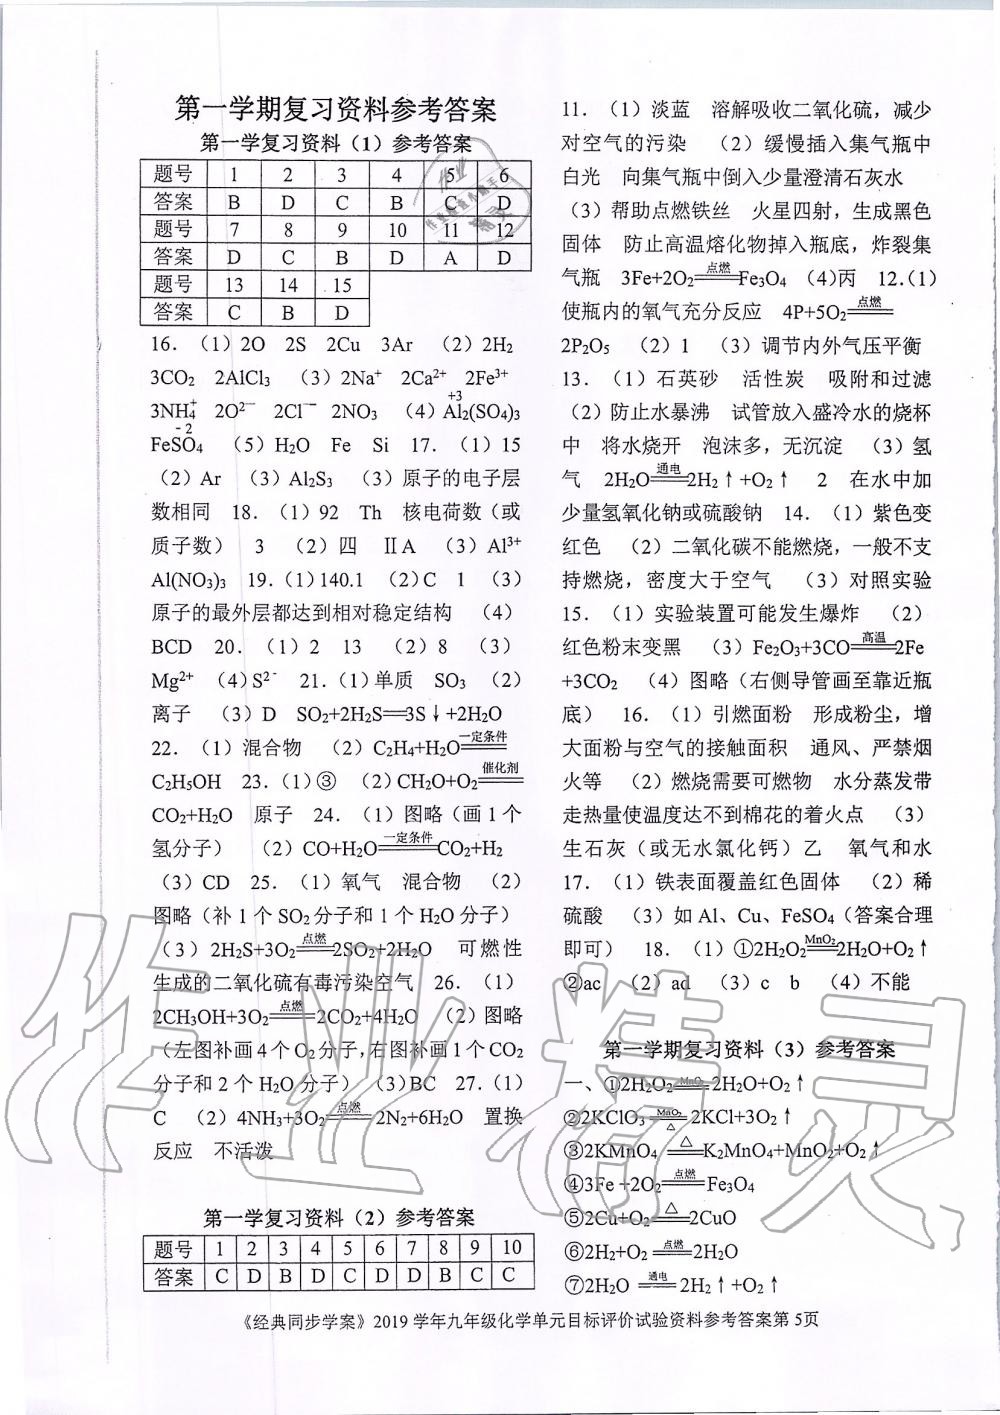 第一学期复习资料参考答案
第一学复习资料（1）参考答案
题号 1 2 3 4 5 6
答案 B D C B C D
题号 7 8 9 10 11 12
答案 D C B D A D
题号 13 14 15
答案 C B D
16．（1）2O 2S 2Cu 3Ar （2）2H₂
3CO₂ 2AlCl₃ （3）2Na⁺ 2Ca²⁺ 2Fe³⁺
3NH₄⁺ 2O²⁻ 2Cl⁻ 2NO₃ （4）Al₂(SO₄)₃ +3
FeSO₄ -2 （5）H₂O Fe Si 17．（1）15
（2）Ar （3）Al₂S₃ （3）原子的电子层
数相同 18．（1）92 Th 核电荷数（或
质子数） 3 （2）四 ⅡA （3）Al³⁺
Al(NO₃)₃ 19.（1）140.1 （2）C 1 （3）
原子的最外层都达到相对稳定结构 （4）
BCD 20．（1）2 13 （2）8 （3）
Mg²⁺ （4）S²⁻ 21．（1）单质 SO₃ （2）
离子 （3）D SO₂+2H₂S══3S↓+2H₂O
22．（1）混合物 （2）C₂H₄+H₂O══一定条件
C₂H₅OH 23．（1）③ （2）CH₂O+O₂══催化剂
CO₂+H₂O 原子 24．（1）图略（画 1 个
氢分子） （2）CO+H₂O══一定条件CO₂+H₂
（3）CD 25．（1）氧气 混合物 （2）
图略（补 1 个 SO₂分子和 1 个 H₂O 分子）
（3）2H₂S+3O₂══点燃2SO₂+2H₂O 可燃性
生成的二氧化硫有毒污染空气 26．（1）
2CH₃OH+3O₂══点燃2CO₂+4H₂O （2）图略
（左图补画 4 个 O₂分子，右图补画 1 个 CO₂
分子和 2 个 H₂O 分子） （3）BC 27．（1）
C （2）4NH₃+3O₂══点燃2N₂+6H₂O 置换
反应 不活泼
第一学复习资料（2）参考答案
题号 1 2 3 4 5 6 7 8 9 10
答案 C D B D C D D B C C
11．（1）淡蓝 溶解吸收二氧化硫，减少
对空气的污染 （2）缓慢插入集气瓶中
白光 向集气瓶中倒入少量澄清石灰水
（3）帮助点燃铁丝 火星四射，生成黑色
固体 防止高温熔化物掉入瓶底，炸裂集
气瓶 3Fe+2O₂══点燃Fe₃O₄ （4）丙 12.（1）
使瓶内的氧气充分反应 4P+5O₂══点燃
2P₂O₅ （2）1 （3）调节内外气压平衡
13．（1）石英砂 活性炭 吸附和过滤
（2）防止水暴沸 试管放入盛冷水的烧杯
中 将水烧开 泡沫多，无沉淀 （3）氢
气 2H₂O══通电2H₂↑+O₂↑ 2 在水中加
少量氢氧化钠或硫酸钠 14．（1）紫色变
红色 （2）二氧化碳不能燃烧，一般不支
持燃烧，密度大于空气 （3）对照实验
15．（1）实验装置可能发生爆炸 （2）
红色粉末变黑 （3）Fe₂O₃+3CO══高温2Fe
+3CO₂ （4）图略（右侧导管画至靠近瓶
底） 16．（1）引燃面粉 形成粉尘，增
大面粉与空气的接触面积 通风、严禁烟
火等 （2）燃烧需要可燃物 水分蒸发带
走热量使温度达不到棉花的着火点 （3）
生石灰（或无水氯化钙）乙 氧气和水
17．（1）铁表面覆盖红色固体 （2）稀
硫酸 （3）如 Al、Cu、FeSO₄（答案合理
即可） 18．（1）①2H₂O₂══MnO₂2H₂O+O₂↑
②ac （2）ad （3）c b （4）不能
第一学期复习资料（3）参考答案
一、①2H₂O₂══MnO₂2H₂O+O₂↑
②2KClO₃══MnO₂△2KCl+3O₂↑
③2KMnO₄══△K₂MnO₄+MnO₂+O₂↑
④3Fe+2O₂══点燃Fe₃O₄
⑤2Cu+O₂══△2CuO
⑥2H₂+O₂══点燃2H₂O
⑦2H₂O══通电2H₂↑+O₂↑
《经典同步学案》2019 学年九年级化学单元目标评价试验资料参考答案第 5页
作业精灵